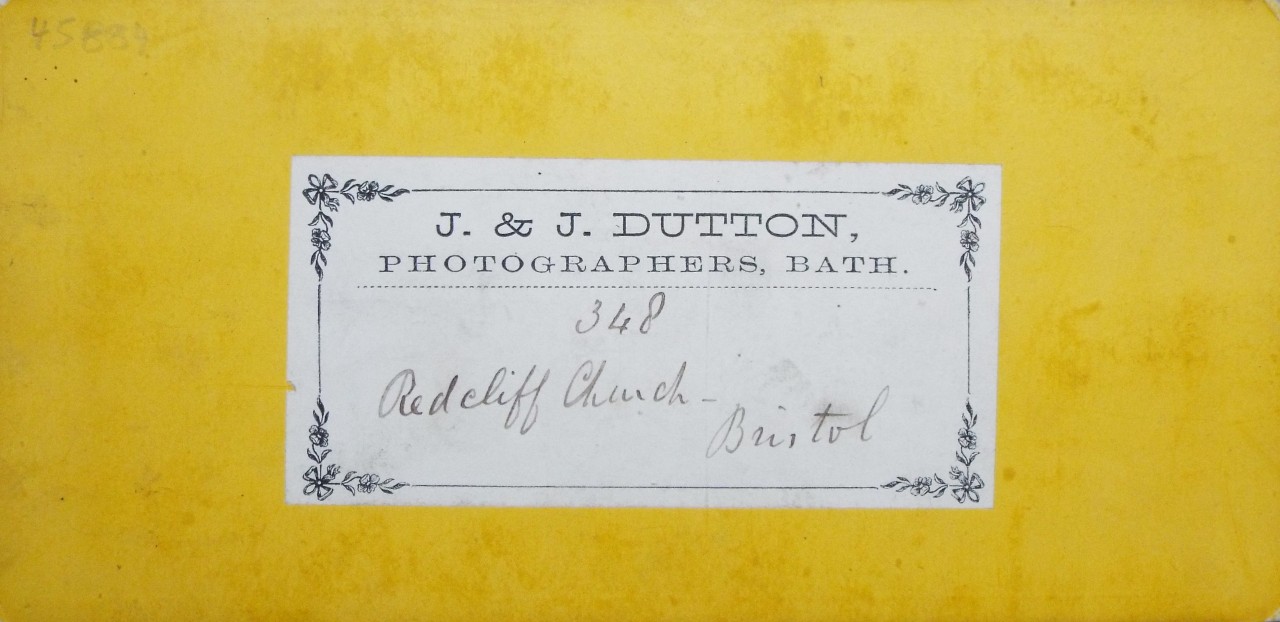 J. & J. DUTTON,
PHOTOGRAPHERS, BATH.
348
Redcliff Church -
Bristol